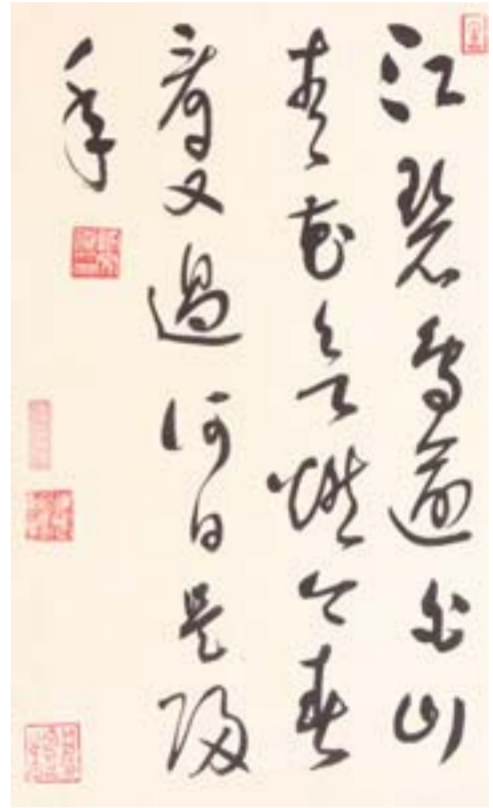 江碧鸟逾白山
青花欲燃今春
看又過何日是歸
年